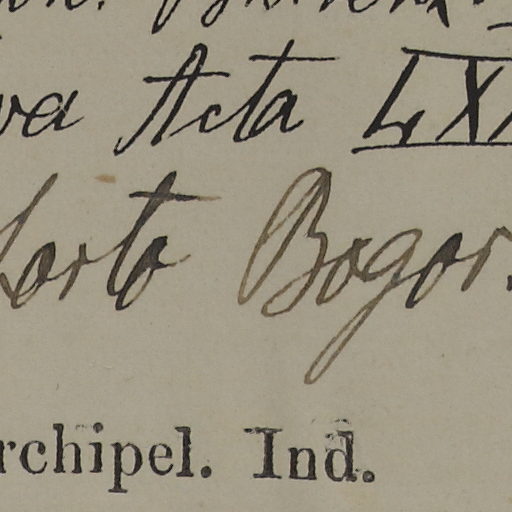 va Acta LXI
Horto Bogor.
rchipel. Ind.